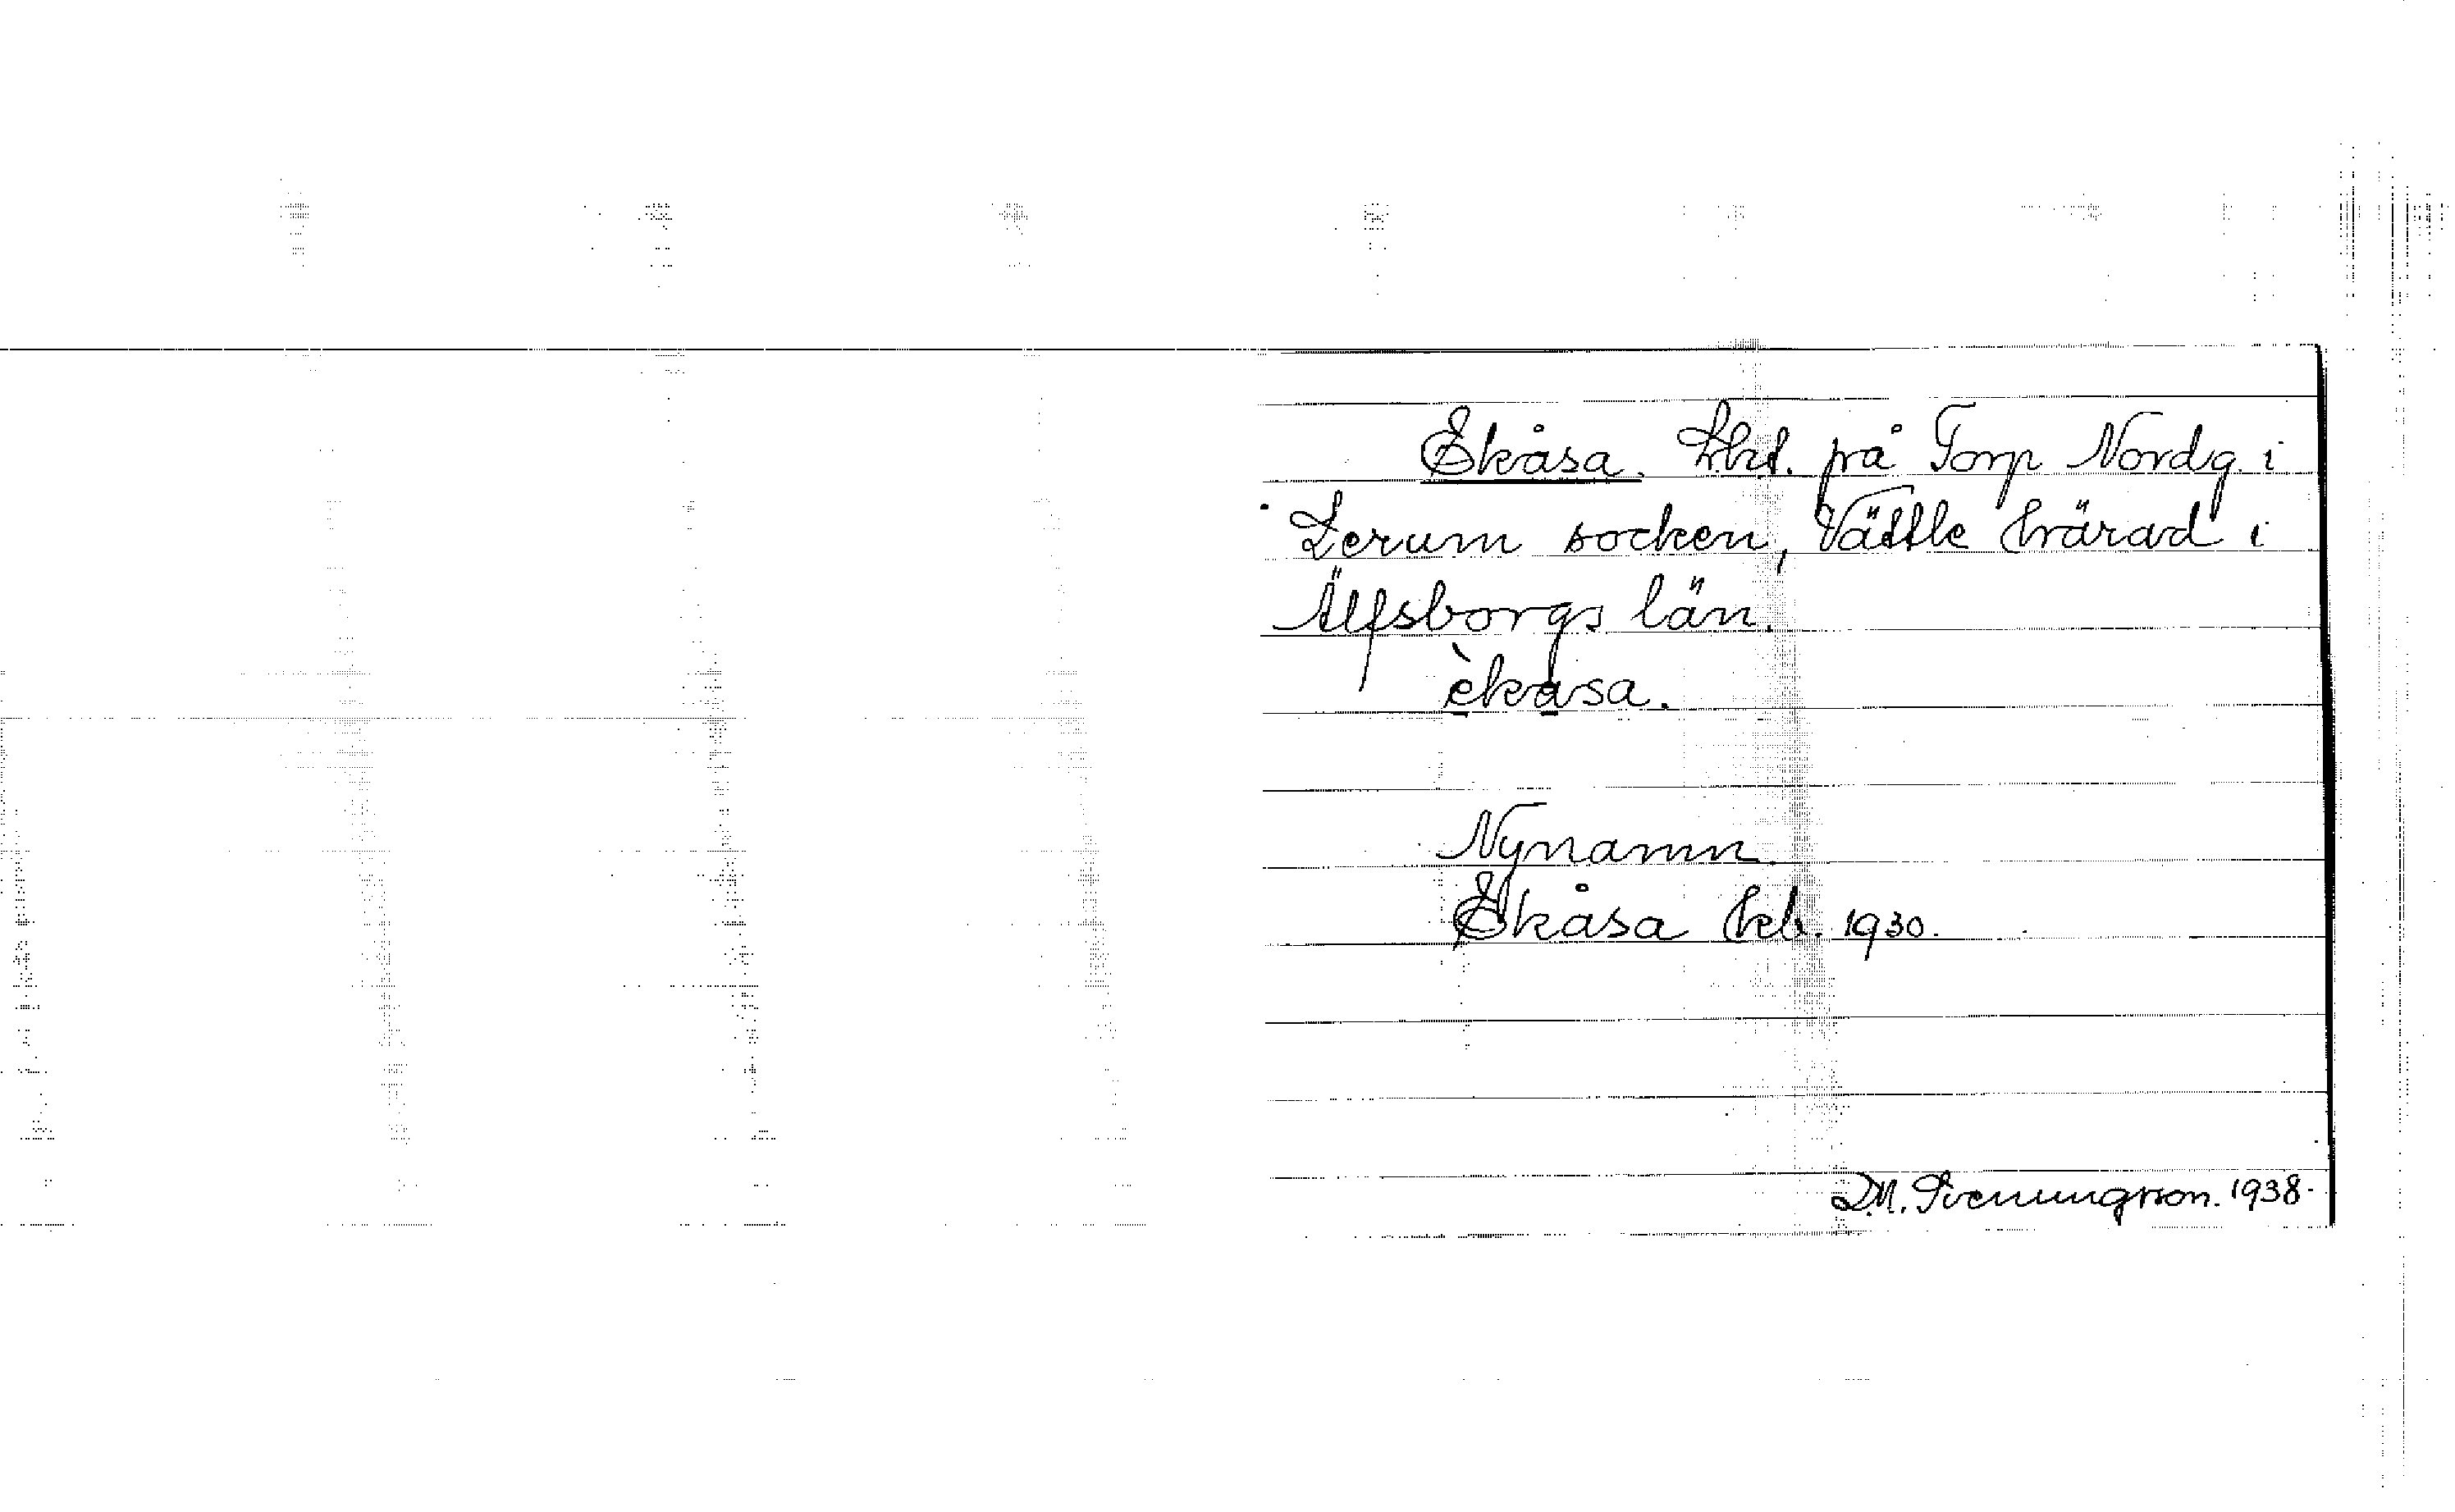 Ekåsa. Lht. på Torp Nordg. i
Lerum socken, Vättle härad i
Älfsborgs län.
èkåsa.
Nynamn.
Ekåsa kb. 1930.
D.M. Svenungsson. 1938.